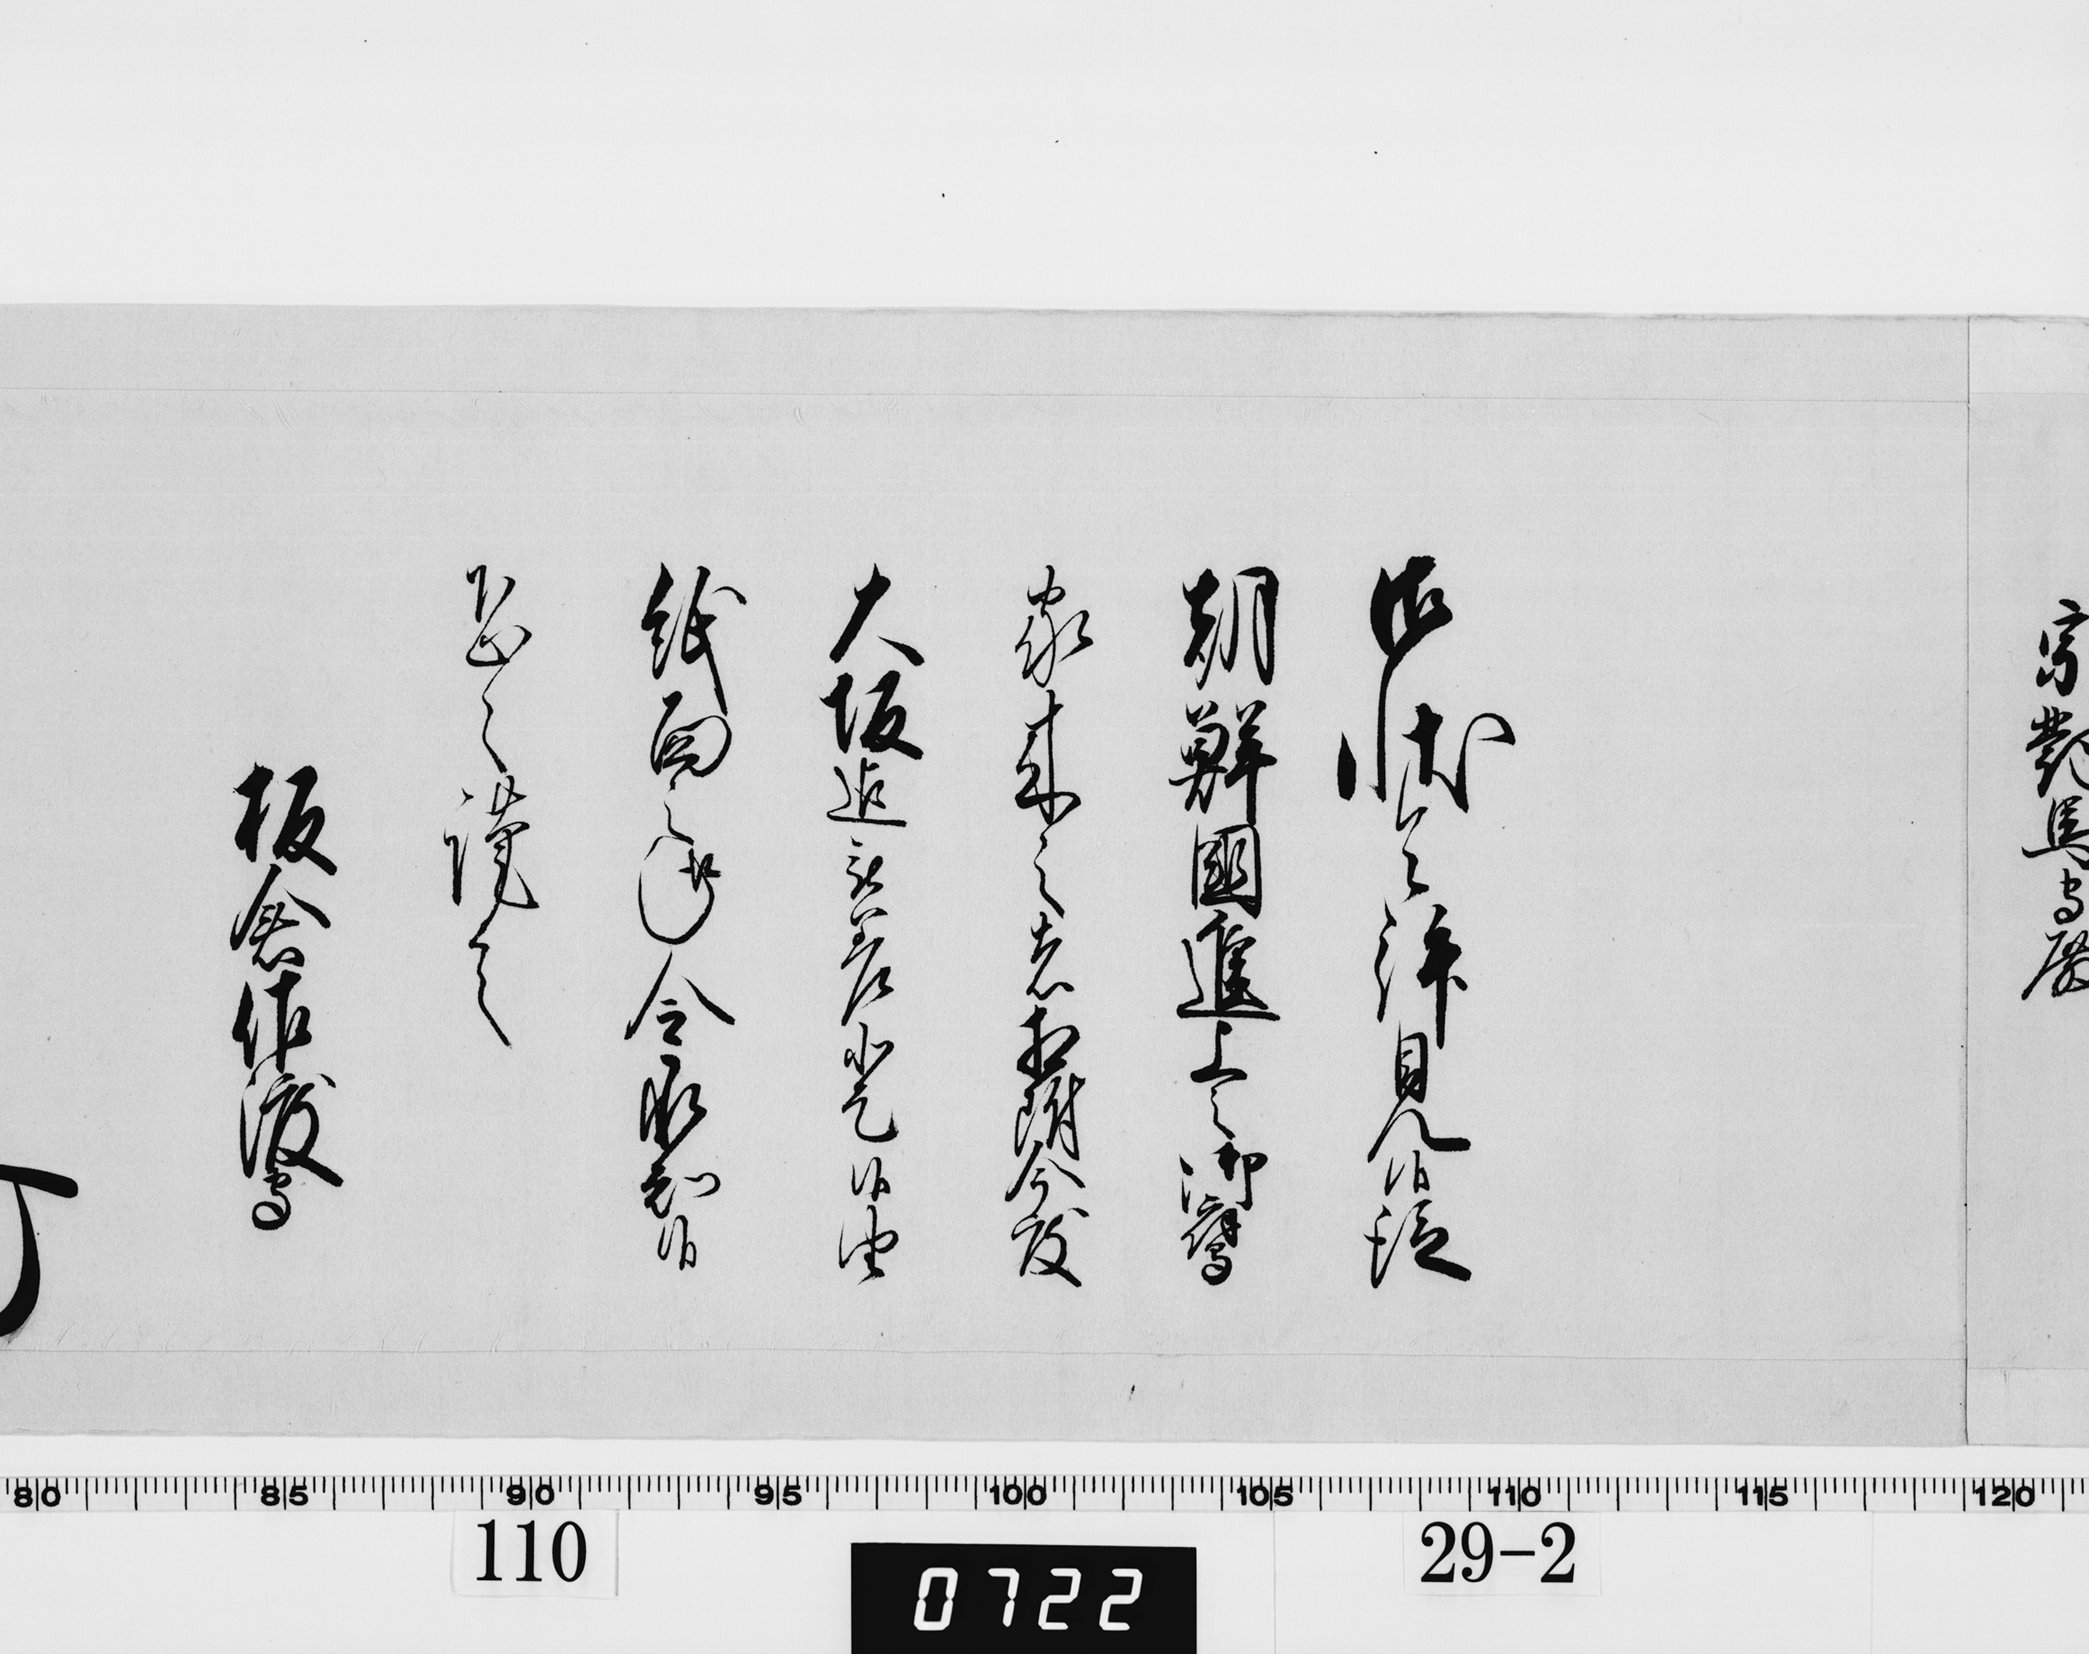 宗對馬守殿
御状令拝見候従
朝鮮國進上之御鷹
家来之者相附今度
大坂迄被差登之
紙面之趣令承知候
恐々謹言
板倉佐渡守
80 85 90 95 100 105 110 115 120
110 29-2
0722